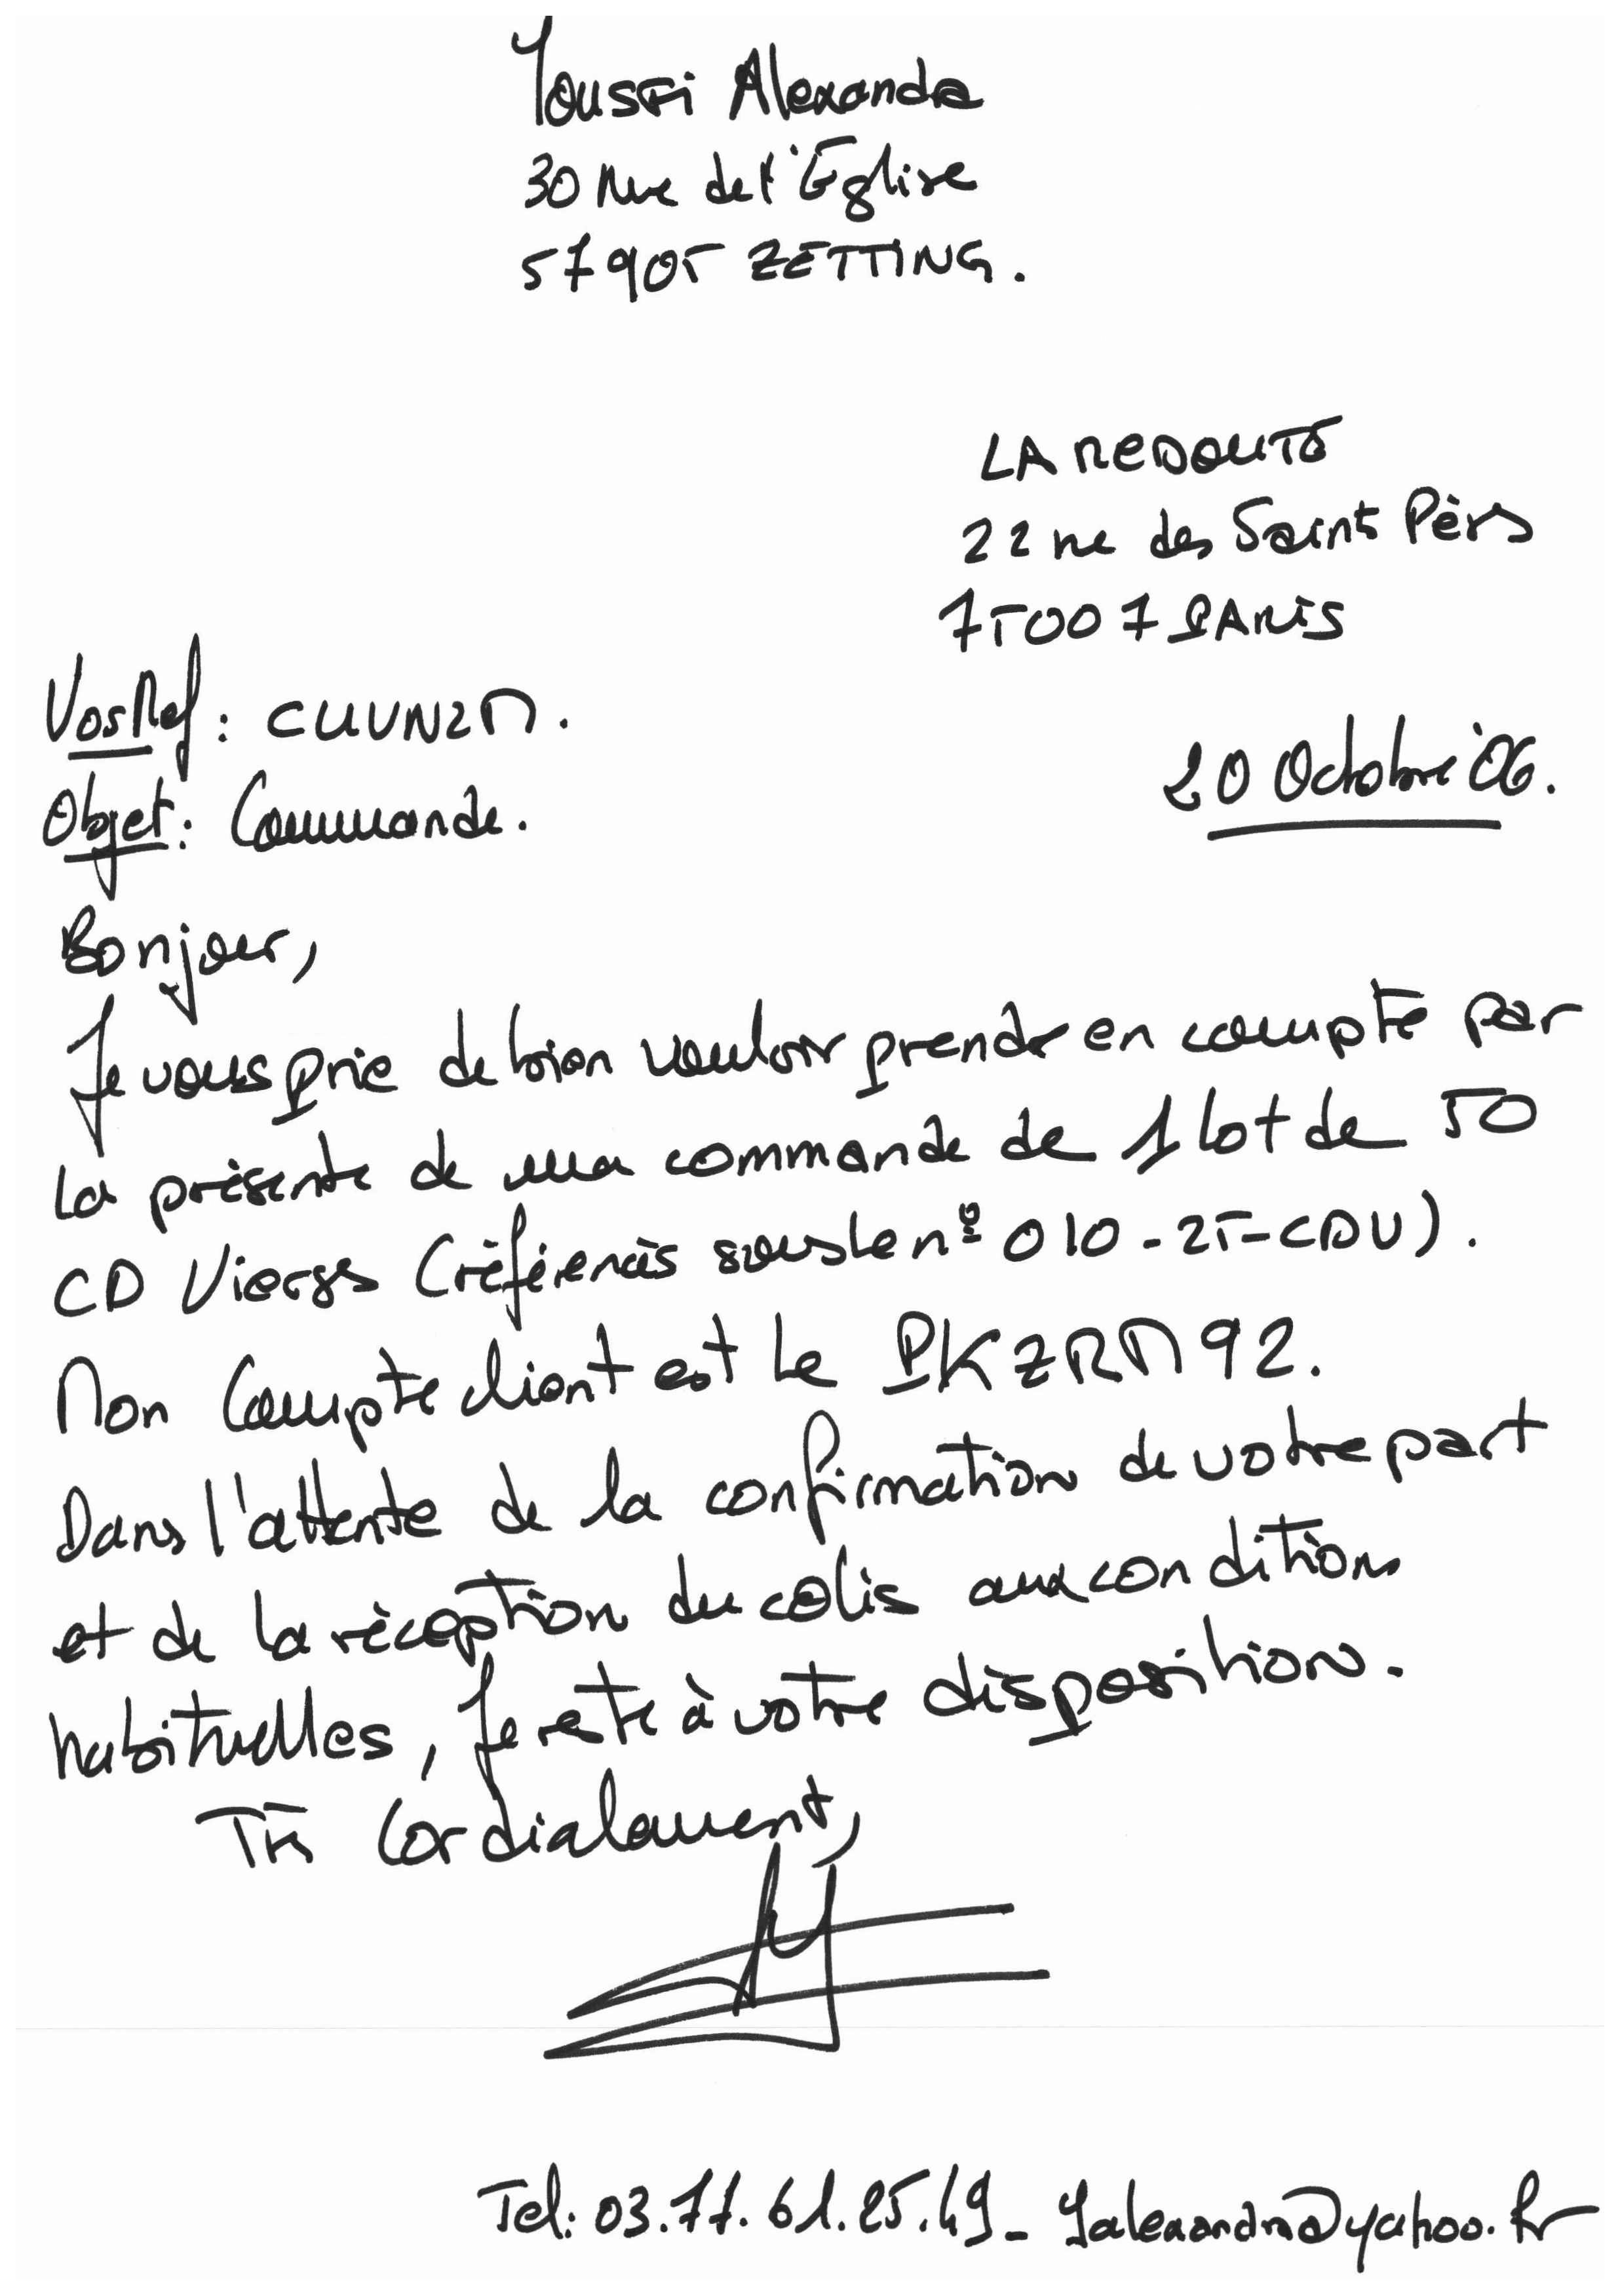 Youssfi Alexandra
30 Rue de l'Eglise
57905 ZETTING.
LA REDOUTE
22 rue des Saints Pères
75007 PARIS
Vos Ref : CUUVN2M.
20 Octobre '06.
Objet : Commande.
Bonjour,
Je vous prie de bien vouloir prendre en compte par
la présente de ma commande de 1 lot de 50
CD Vierges (référencés sous le n° 010-25-CDV).
Mon Compte client est le PKZRM92.
Dans l'attente de la confirmation de votre part
et de la réception du colis aux conditions
habituelles, Je reste à votre disposition.
Cordialement,
Tel: 03.77.61.25.49 - Yalexandra@yahoo.fr